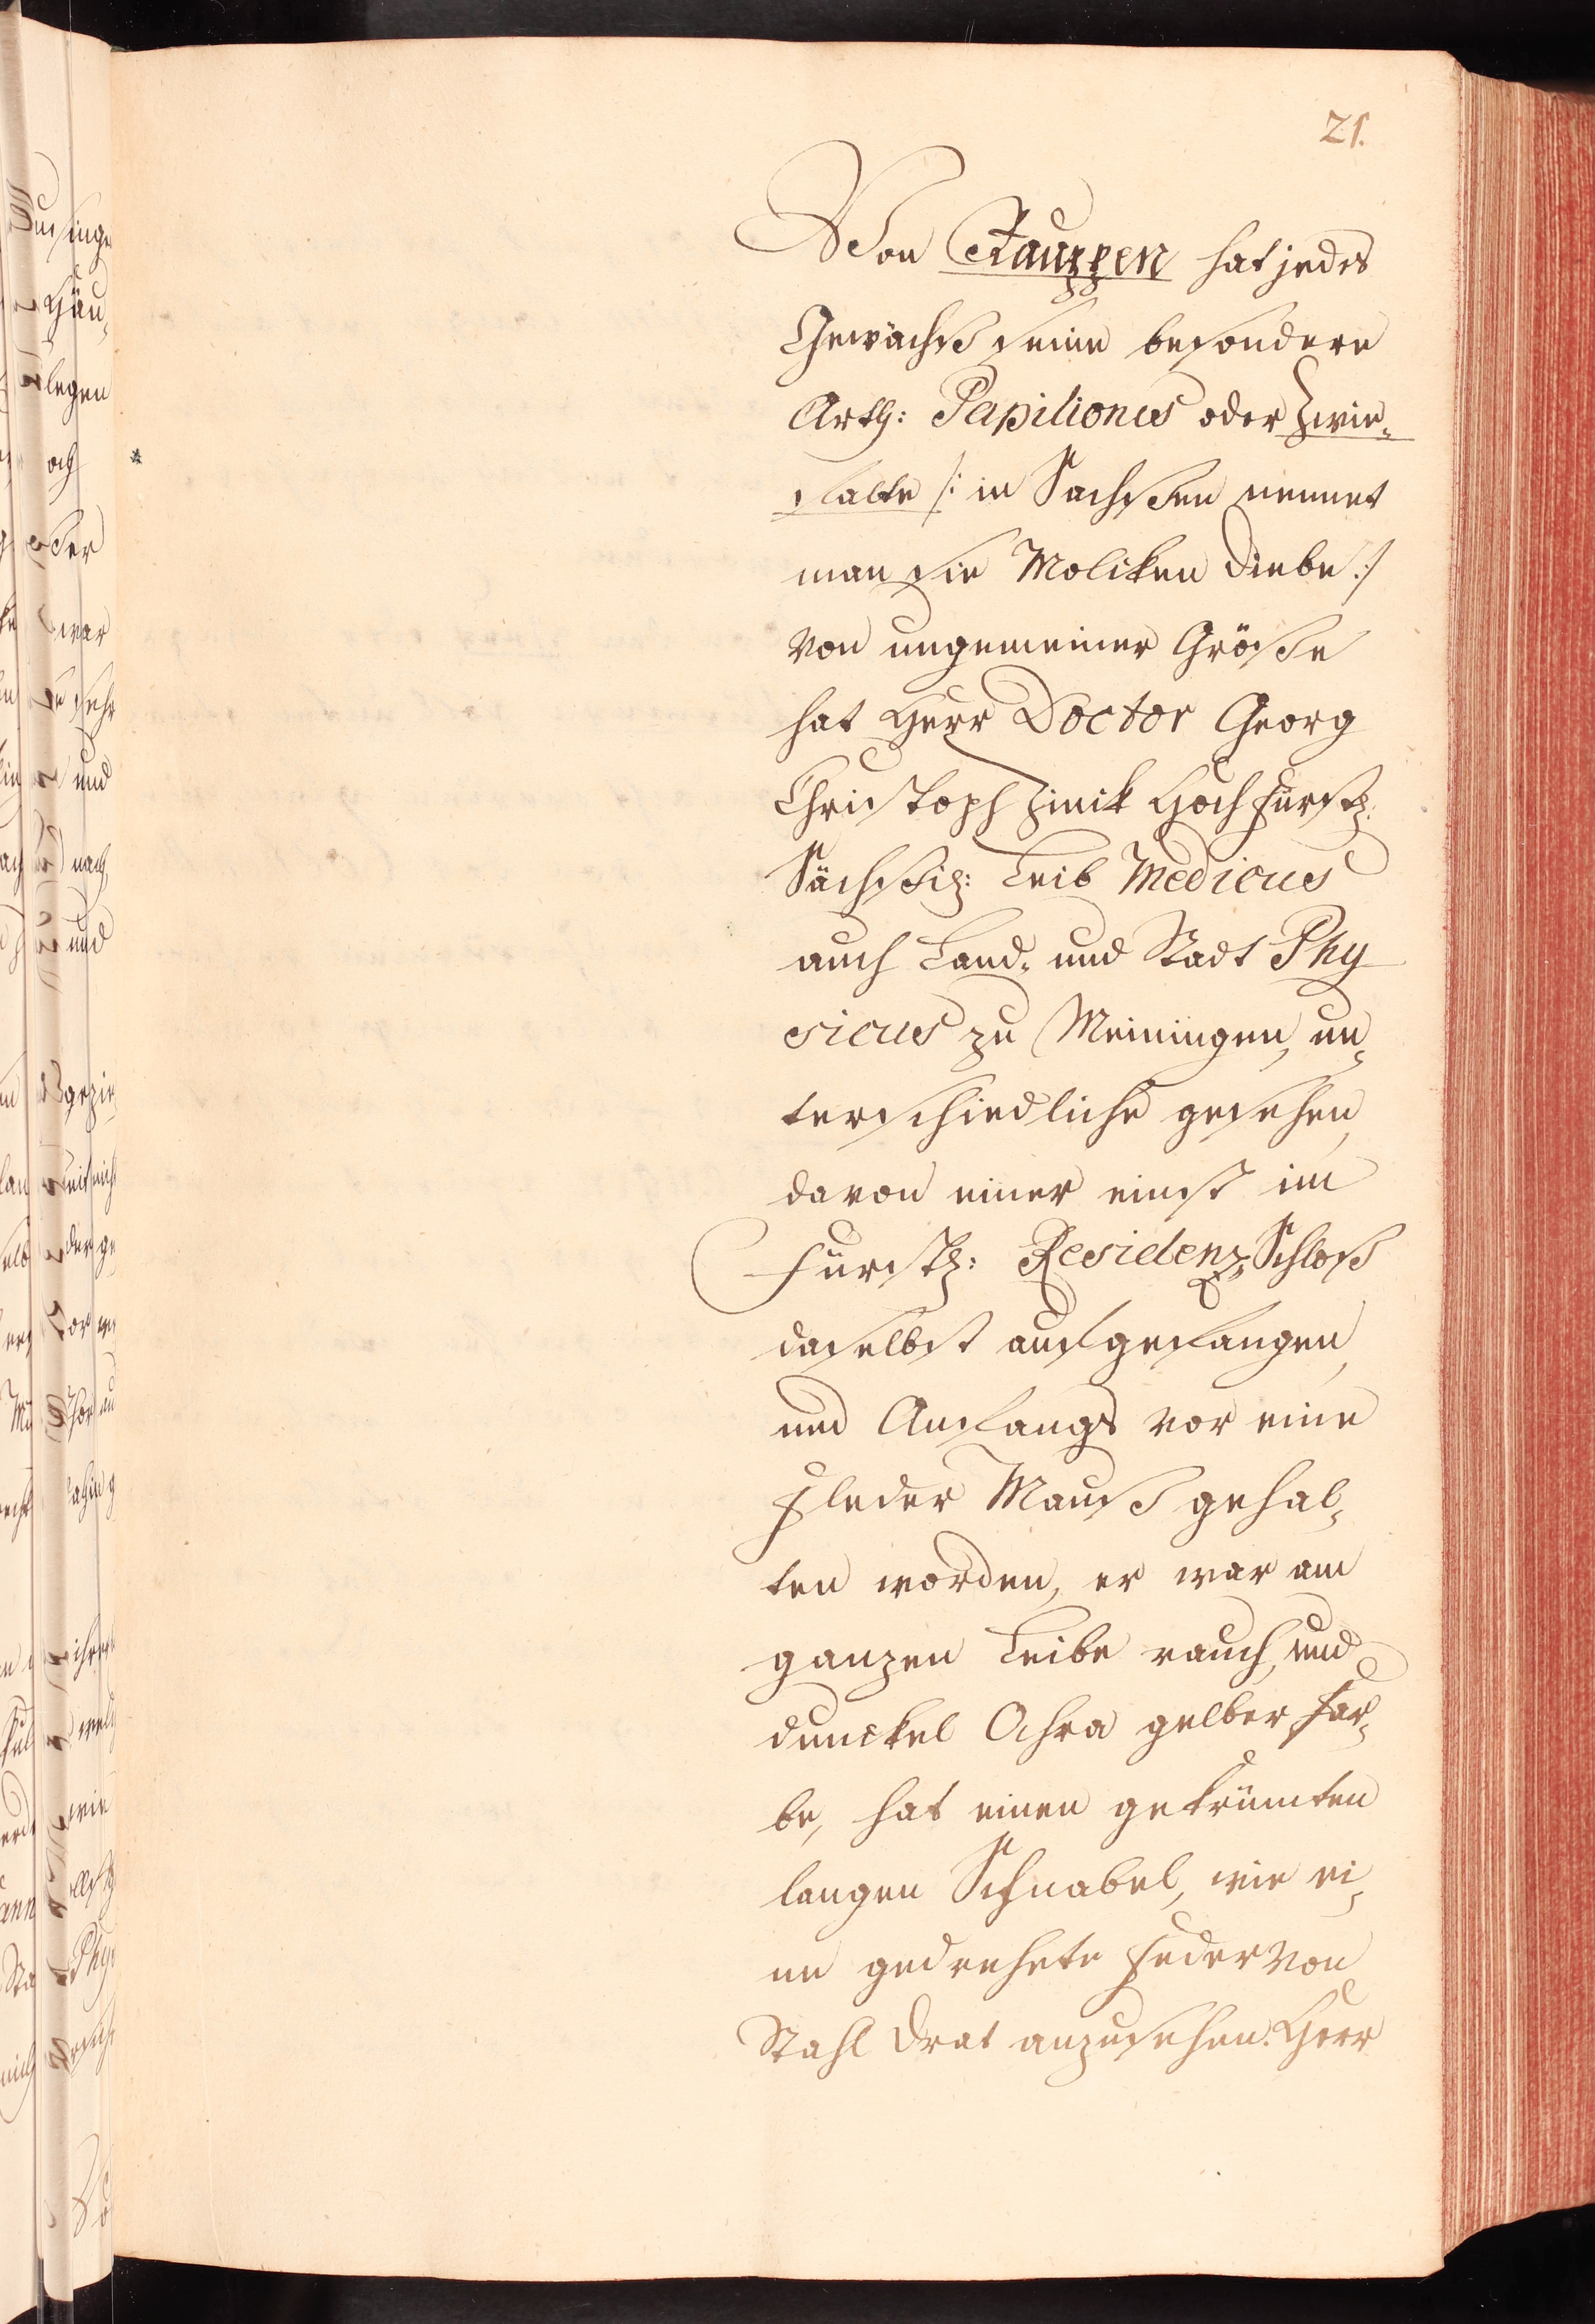 21.
Von Rauppen hat jedes
Gewächß seine besondere
Arth: Papiliones oder Zwie„
falte /: in Sachßen nennet
man sie Molken Diebe :/
von ungemeiner Größe
hat Herr Doctor Georg
Christoph Zinik Hochfürstl:
Sächßil: Leib Medicus
auch Land„ und Stadt Phy
sicus zu Meiningen, un„
terschiedliche gesehen,
davon einer einst im
Fürstl: Residenz„Schloß
daselbst aufgefangen,
und Anfangs vor eine
Fleder Mauß gehal„
ten worden, er war am
ganzen Leibe rauch, und
dunckel Ochra gelber Far„
be, hat einen gekrümten
langen Schnabel, wie ei„
ne gedrehete Feder von
Stahl Drat anzusehen. Herr